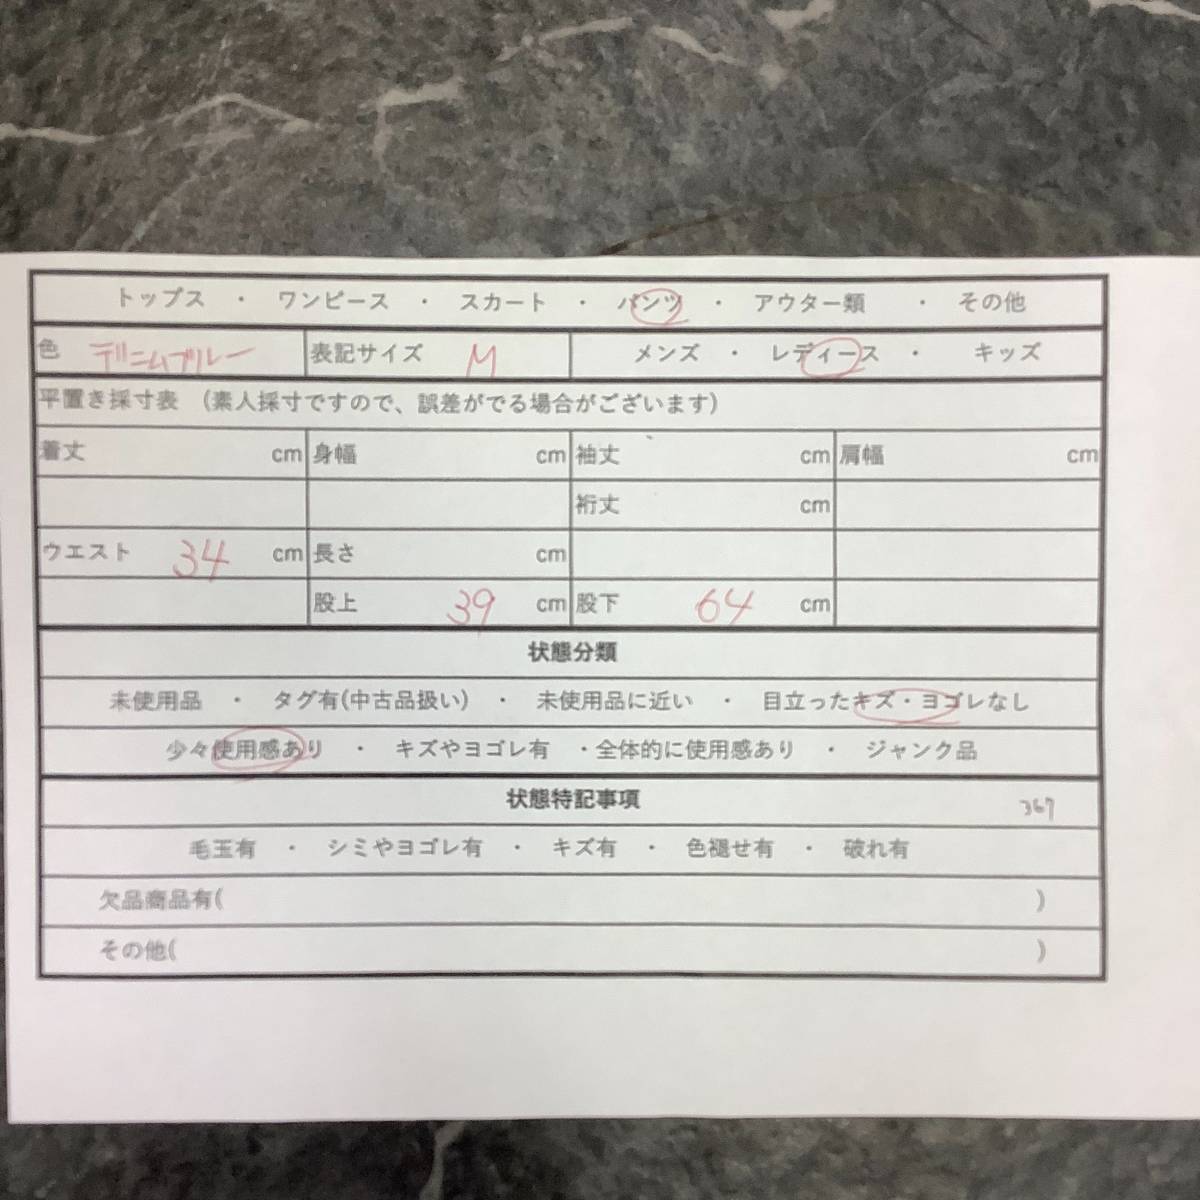 トップス ・ ワンピース ・ スカート ・ パンツ ・ アウター類 ・ その他
色 デニムブルー 表記サイズ M メンズ ・ レディース ・ キッズ
平置き採寸表 (素人採寸ですので、誤差がでる場合がございます)
着丈 cm 身幅 cm 袖丈 cm 肩幅 cm
裄丈 cm
ウエスト 34 cm 長さ cm
股上 39 cm 股下 64 cm
状態分類
未使用品 ・ タグ有(中古品扱い) ・ 未使用品に近い ・ 目立ったキズ・ヨゴレなし
少々使用感あり ・ キズやヨゴレ有 ・全体的に使用感あり ・ ジャンク品
状態特記事項 367
毛玉有 ・ シミやヨゴレ有 ・ キズ有 ・ 色褪せ有 ・ 破れ有
欠品商品有( )
その他( )